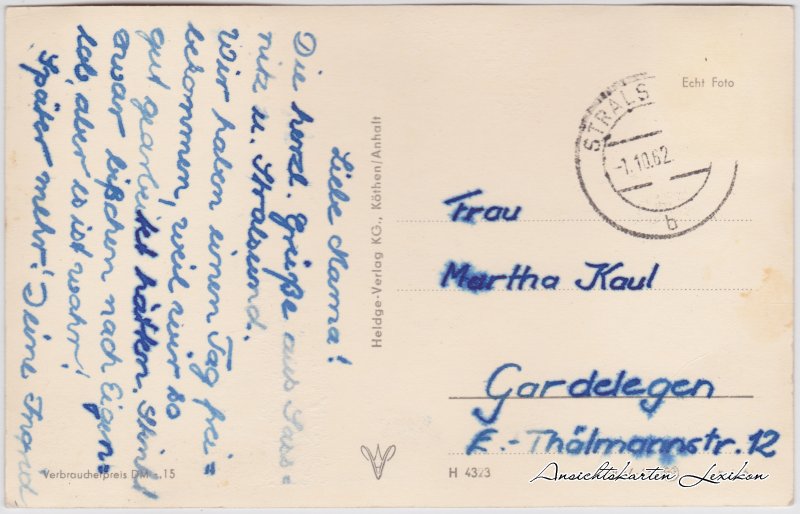 Liebe Mama!
Die herzl. Grüße aus Sass=
nitz u. Stralsund.
Wir haben einen Tag frei=
bekommen, weil wir so
gut gearbeitet hätten. Stinkt
zwar bißchen nach Eigen=
lob, aber es ist wahr!
Später mehr! Deine
Heldge-Verlag KG., Köthen/Anhalt
Echt Foto
STRALS
-1.10.62
b
Frau
Martha Kaul
Gardelegen
E.-Thälmannstr. 12
Verbraucherpreis DM -.15
H 4323
Ansichtskarten Lexikon